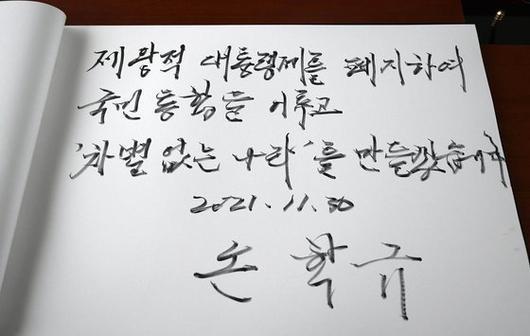 제왕적 대통령제를 폐지하여
국민 통합을 이루고
'차별 없는 나라'를 만들겠습니다
2021. 11. 30
손 학 규